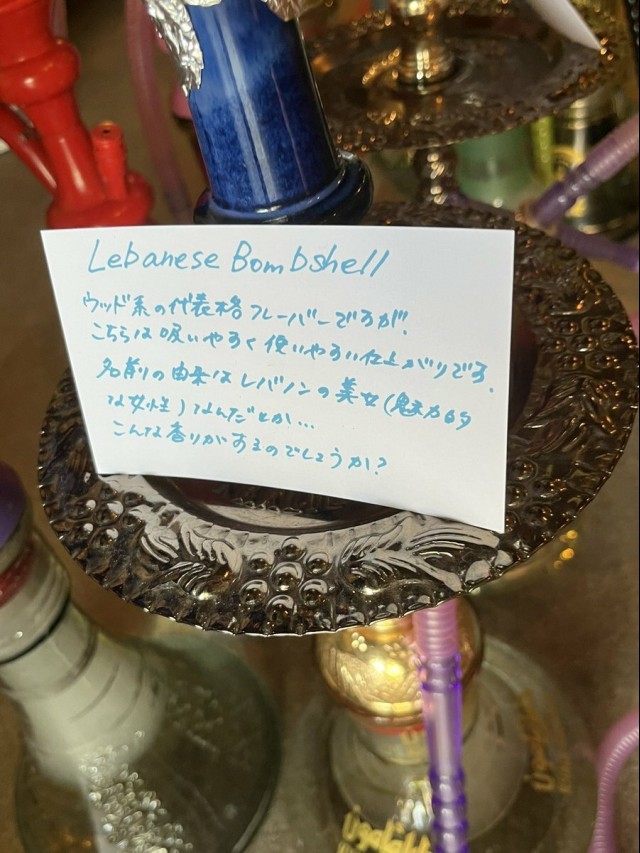 Lebanese Bombshell
ウッド系の代表格フレーバーですが、
こちらは吸いやすく使いやすい仕上がりです。
名前の由来はレバノンの美女(魅力的
な女性)なんだとか…
こんな香りがするのでしょうか?